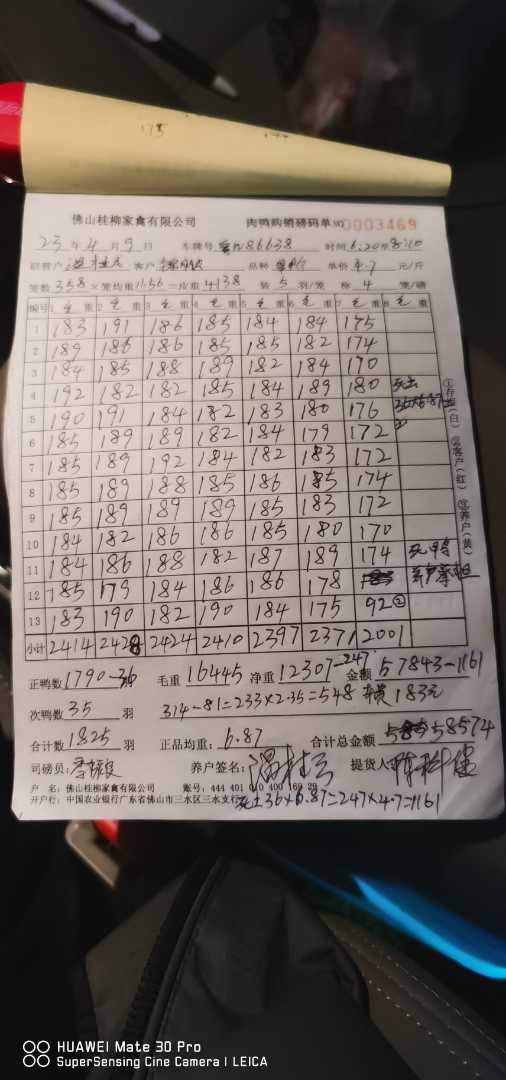 佛山桂柳家禽有限公司 肉鸭购销磅码单 NO 0003469
23 年 4 月 9 日 车牌号 86638 时间 6:20至8:10
客户 品种 单价 4.7 元/斤
笼数 358 ×笼均重 11.56 =皮重 4138 装 5 羽/笼 称 4 笼/磅
编号 1 毛 重 2 毛 重 3 毛 重 4 毛 重 5 毛 重 6 毛 重 7 毛 重 8 毛 重
1 183 191 186 185 184 184 175
2 189 186 186 185 185 182 174
3 184 185 188 189 182 184 170
4 192 182 182 185 184 189 180
5 190 191 184 182 183 180 176
6 185 189 189 182 184 179 172
7 185 189 192 184 182 183 172
8 185 189 188 185 186 185 174
9 185 189 189 189 185 183 172
10 184 182 186 186 185 180 170
11 184 186 188 182 187 189 174
12 185 179 184 186 186 178
13 183 190 182 190 184 175 92②
小计 2414 2428 2424 2410 2397 2371 2001
①存根(白) ②客户(红) ③养户(黄)
正鸭数 1790-36 毛重 16445 净重 12307-247 金额 57843-1161
次鸭数 35 羽 314-81=233×2.35=548 183元
合计数 1825 羽 正品均重: 6.87 合计总金额 58574
司磅员: 养户签名: 提货人
户 名: 佛山桂柳家禽有限公司 账号: 444 401 010 400 169 29
开户行: 中国农业银行广东省佛山市三水区三水支行
36×6.87=247×4.7=1161
HUAWEI Mate 30 Pro
SuperSensing Cine Camera | LEICA